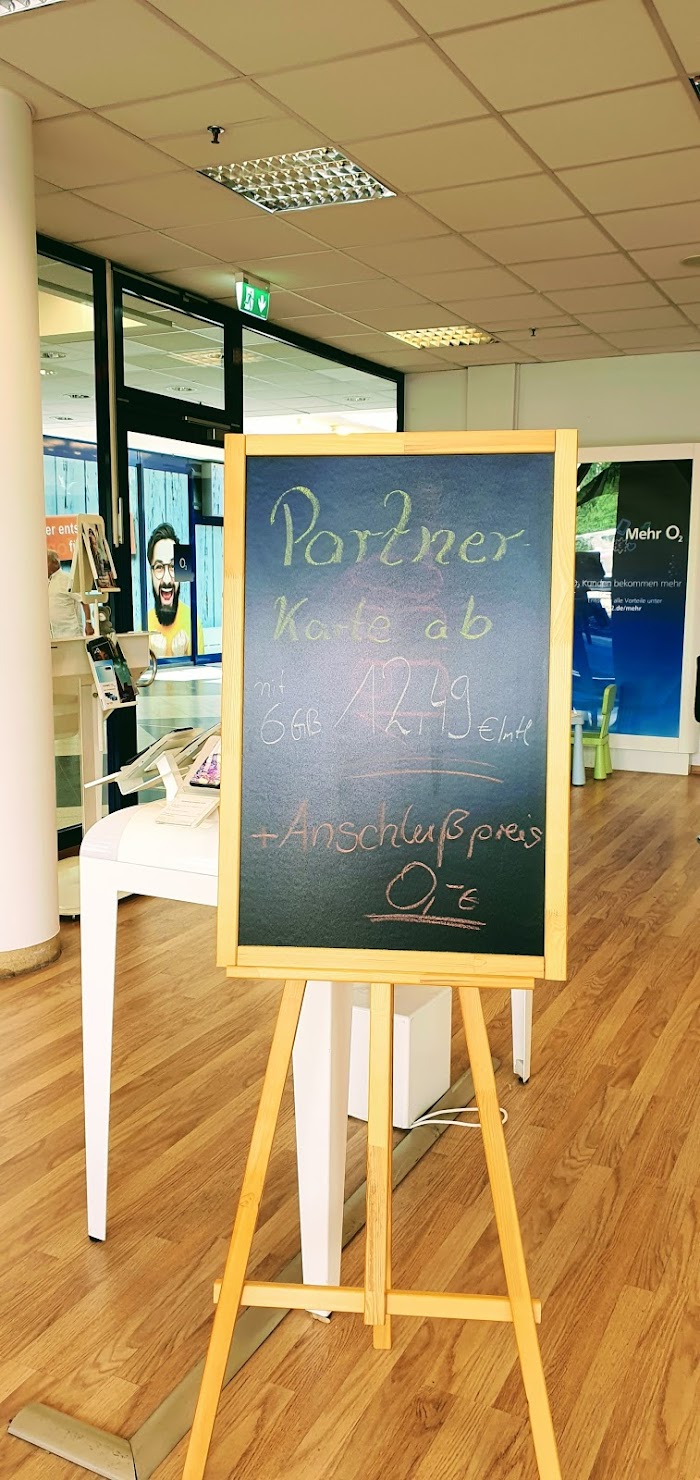 Partner
Karte ab
mit
6GB 12,49 €/mtl
+ Anschlußpreis
0,-€
Mehr O₂
O₂ Kunden bekommen mehr
alle Vorteile unter
.de/mehr
O₂
er ents